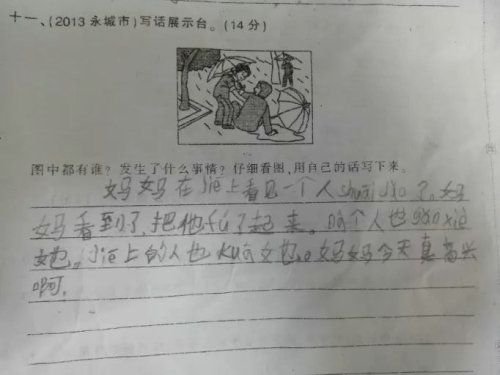 十一、(2013 永城市)写话展示台。(14 分)
图中都有谁? 发生了什么事情? 仔细看图,用自己的话写下来。
妈妈在jiē上看见一个人shuāi dǎo了。妈
妈看到了把他fú了起来。那个人也gǎn xiè
她。jiē上的人也kuā她。妈妈今天真高兴
啊。